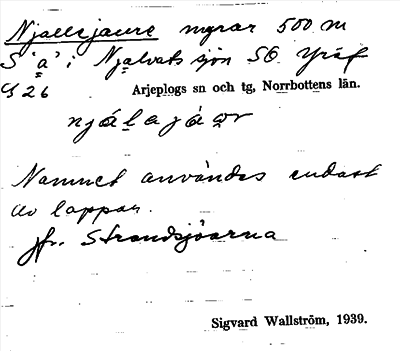 Njallejaure myrar 500 m
S "a" i Njalvats sjön SO
G 26 Arjeplogs sn och tg, Norrbottens län.
njálajáwr
Namnet användes endast
av lappar.
jfr. Strandsjöarna
Sigvard Wallström, 1939.